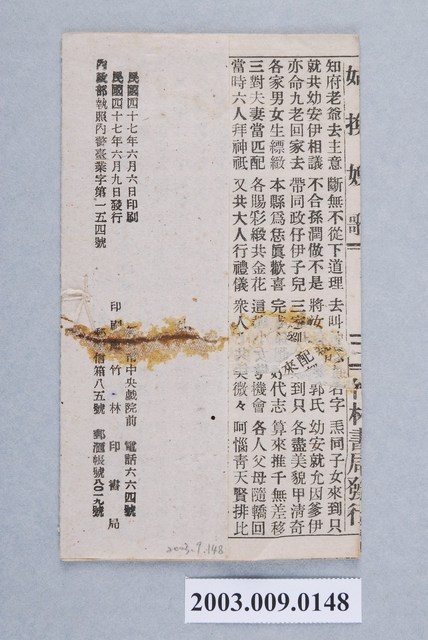 換 歌 三 竹林書局發行
知府老爺去主意 斷無不從下道理 去叫 名字 焏同子女來到只
就共幼安伊相議 不合孫潤做不是 將汝 郭氏 幼安就允因爹伊
亦命九老回家去 帶同政仔伊子兒 三 到只 各盡美貌甲清奇
各家男女生縹緻 本縣爲恁眞歡喜 完 好代志 算來推千無差移
三對夫妻當匹配 各賜彩緞共金花 這 機會 各人父母隨轎回
當時六人拜神祇 又共大人行禮儀 衆人 笑微々 呵惱靑天賢排比
配來
民國四十七年六月六日印刷
民國四十七年六月九日發行
內政部執照內警臺業字第一五四號
中央戲院前 電話六六四號
印 竹林印書局
信箱八五號 郵滙帳號八〇一九號
2003.9.148
2003.009.0148